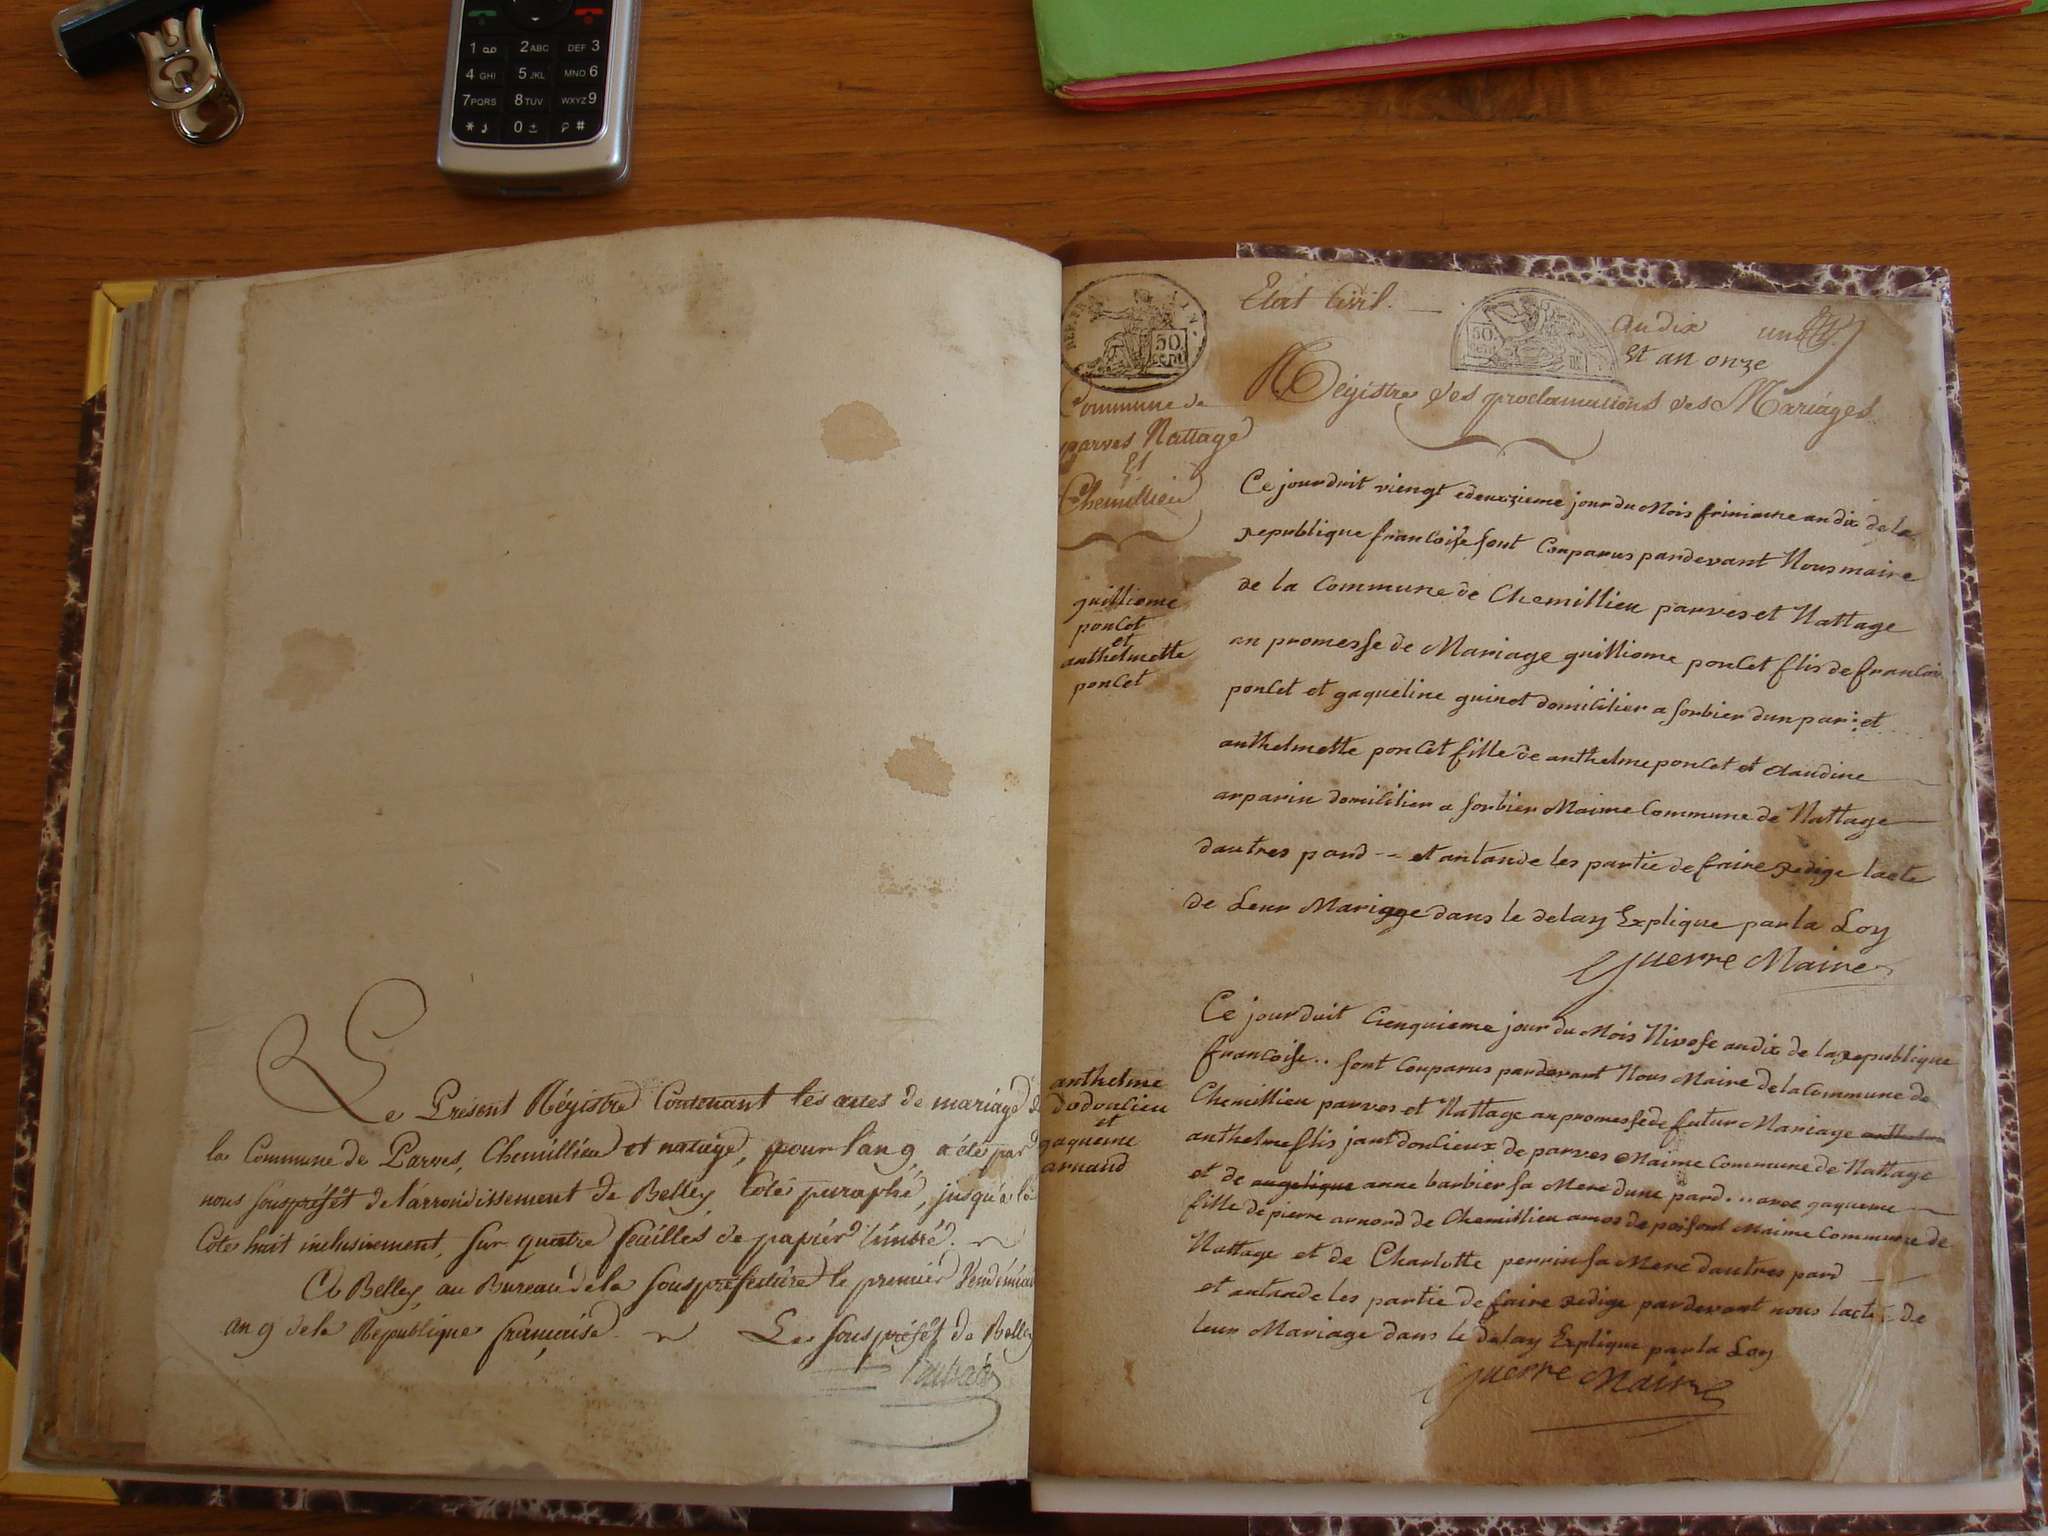 1
2 ABC
DEF 3
4 GHI
5 JKL
MNO 6
7 PQRS
8 TUV
WXYZ 9
*
0
#
Le Présent Régistre Contenant les actes de mariage de
la Commune de Parves, Chemillieu et natage, pour l'an 9, a été par
nous souspréfêt de l'arrondissement de Belley, Coté paraphé, jusqu'a la
Cote huit inclusivement, sur quatre feuilles de papier timbré.
A Belley, au Bureau de la souspréfecture le premier Vendémiaire
an 9 de la République française. Le souspréfêt de Belley
REP. FRA
50.
cent
Etat Civil.
50.
cent
an dix
un
Et an onze
Régistre des proclamations des Mariages
Commune de
parves Nattage
Et
Chemillieu
guilliome
poncet
et
anthelmette
poncet
Ce jourduit viengt edeuxzieme jour du Mois frimaire an dix de la
republique francoise sont Conparus pardevant Nous maire
de la Commune de Chemillieu parves et Nattage
an promesse de Mariage guilliome poncet flis de francois
poncet et gaqueline guinet domicilier a sorbier dun par: et
anthelmette poncet fille de anthelme poncet et claudine
arparin domicilier a sorbier Maime Commune de Nattage
dautres pard -- et antande les partie de faire redige lacte
de Leur Mariage dans le delay Explique par la Loy
Guerre Maire
anthelme
dodoucieu
et
gaqueme
arnaud
Ce jourduit Cienquieme jour du Mois Nivose an dix de la republique
francoise .. sont Conparus pardevant Nous Maire de la Commune de
Chemillieu parves et Nattage an promesse de futur Mariage anthelme
anthelme flis jant doucieux de parves Maime Commune de Nattage
et de angelique anne barbier sa Mere dune pard ... avec gaqueme
fille de pierre arnord de Chemillieu amos de poisont Maime Commune de
Nattage et de Charlotte perrin sa Mere dautres pard
et antande les partie de faire redige pardevant nous lacte de
leur Mariage dans le delay Explique par la Loy
Guerre Maire